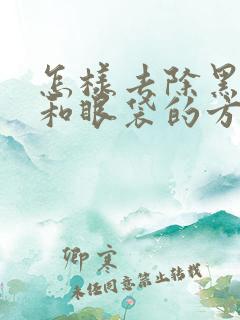 怎样去除黑
和眼袋的方
卿寒
未经同意禁止转载